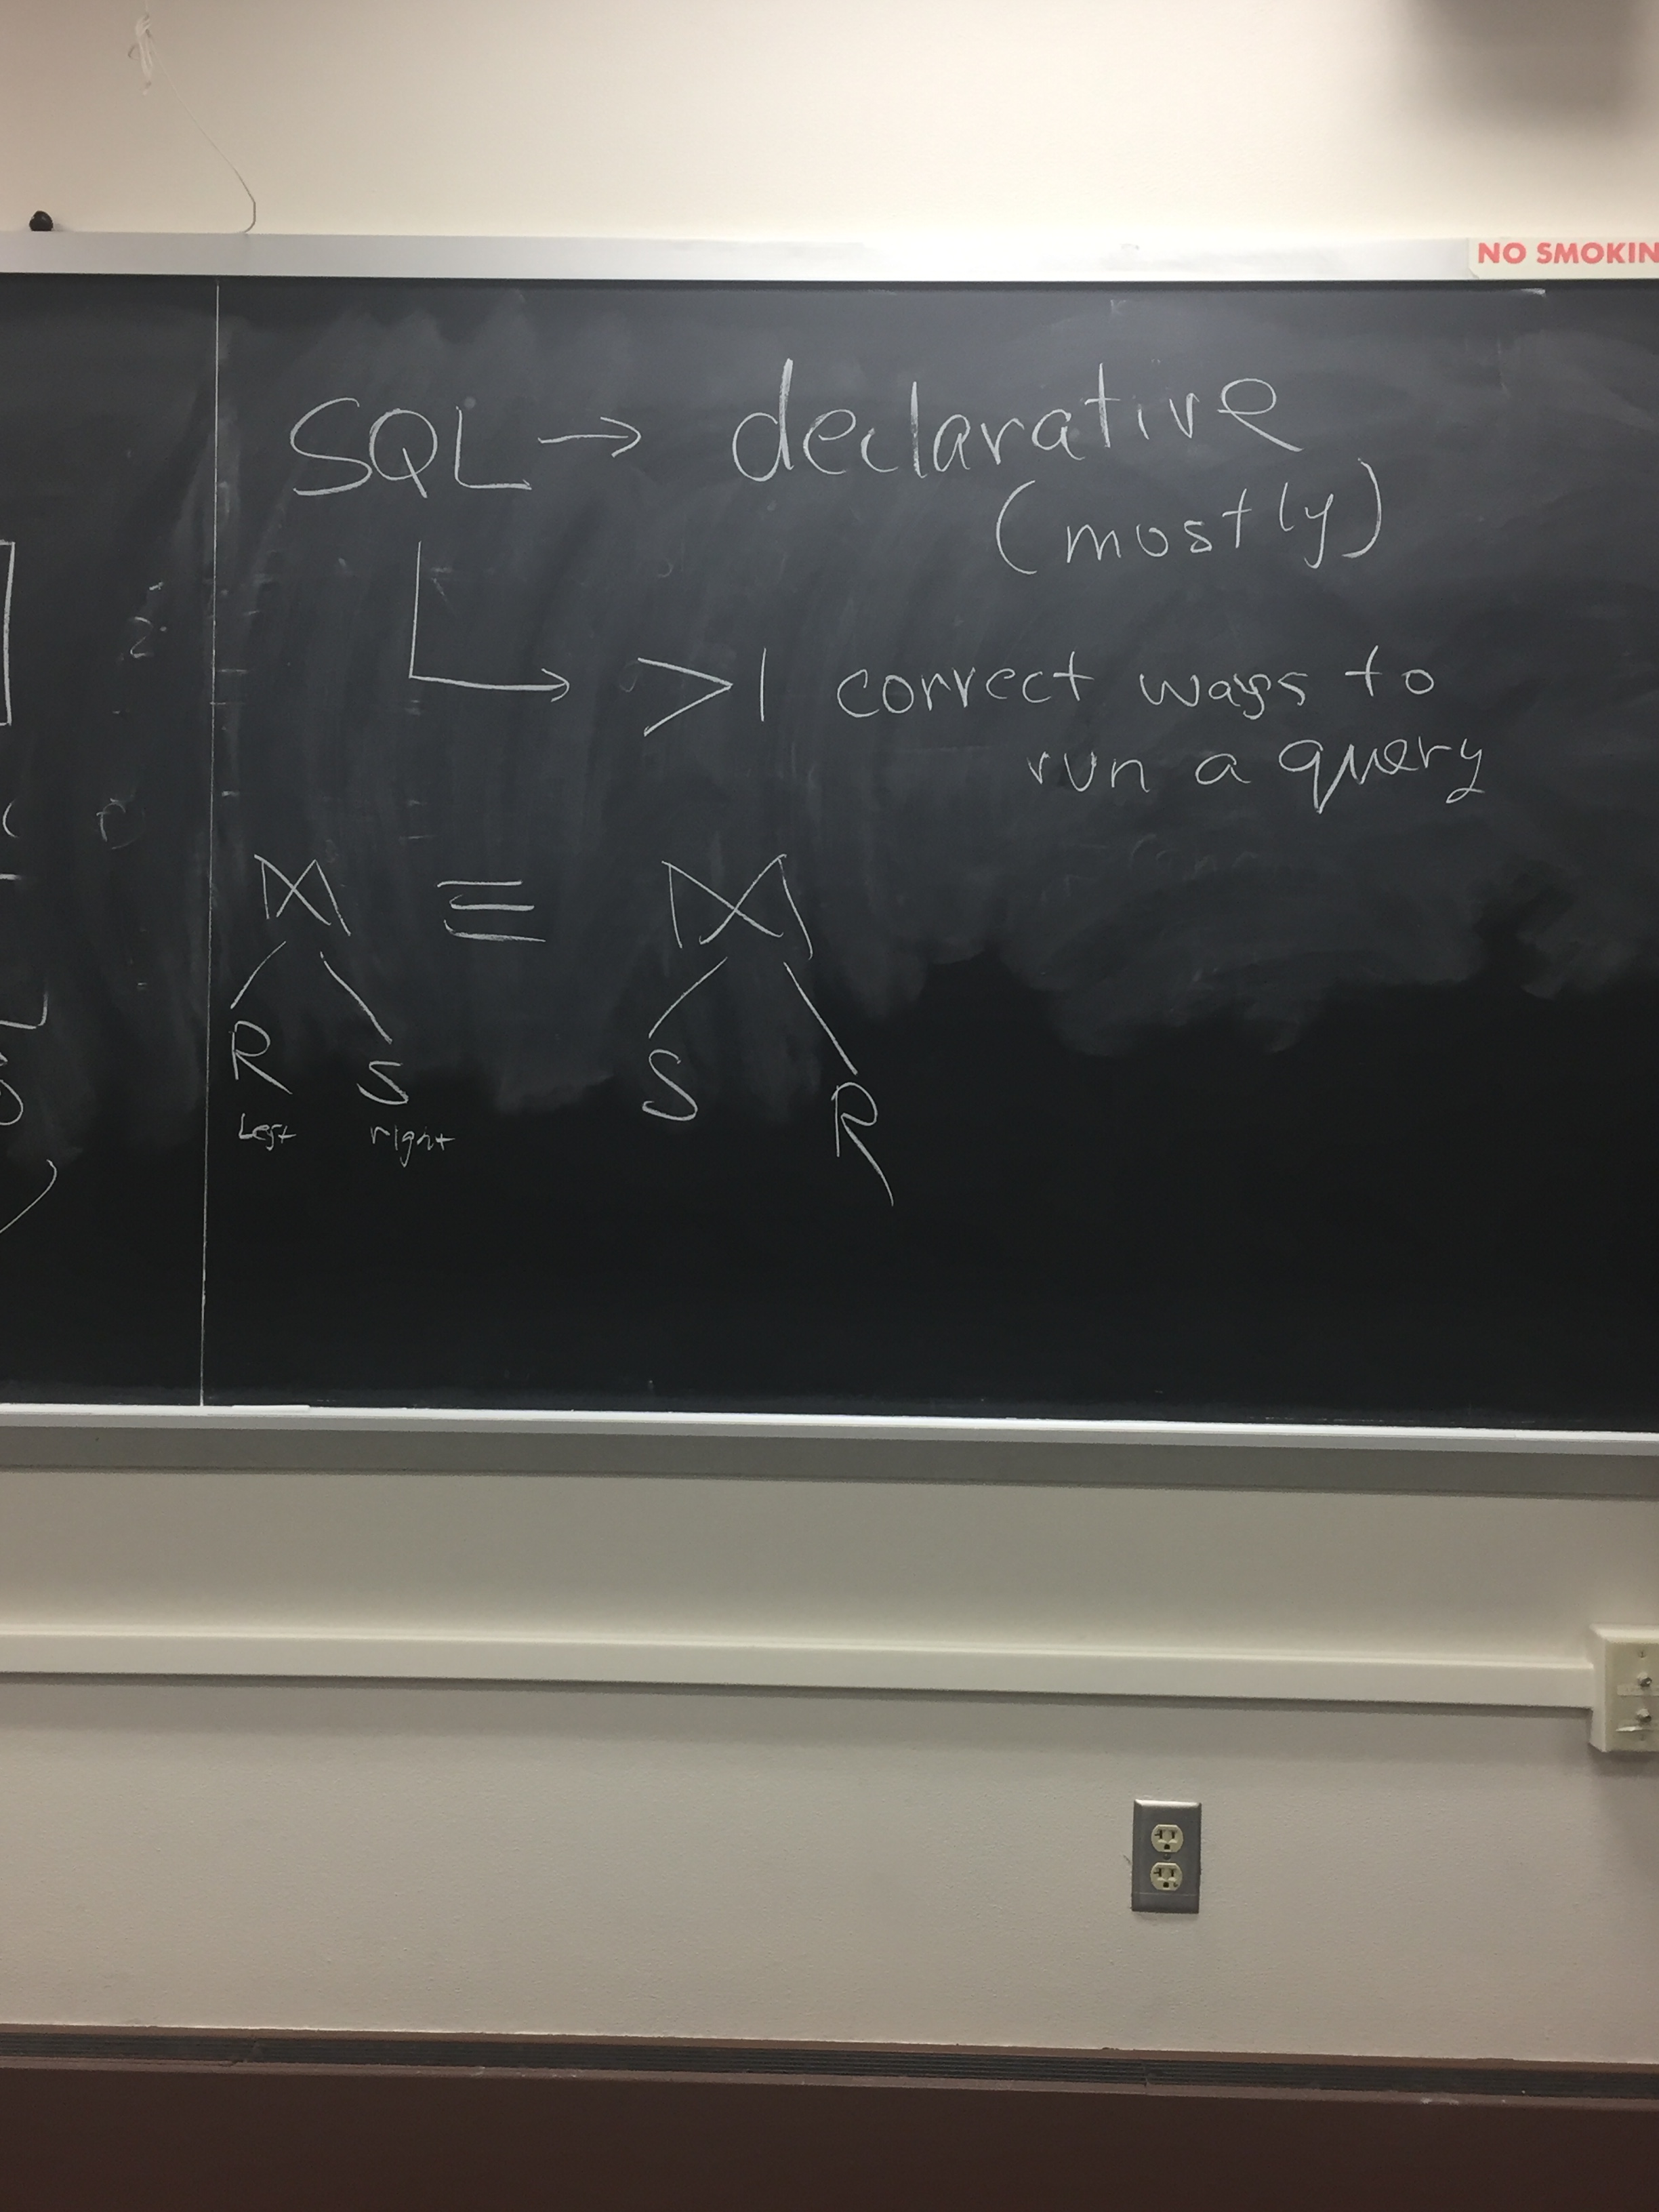 NO SMOKIN
SQL → declarative
(mostly)
>1 correct ways to
run a query
⋈ ≡ ⋈
R S S R
Left right